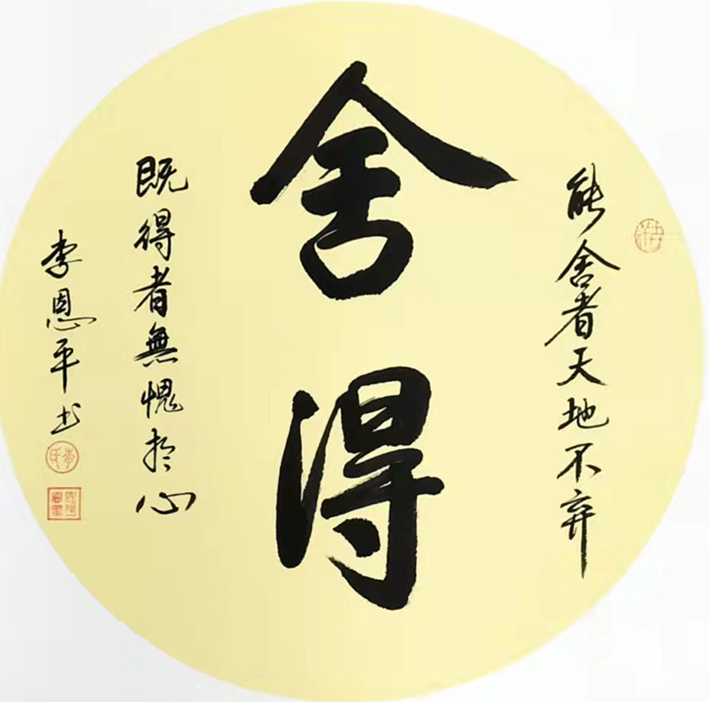 舍得
能舍者天地不弃
既得者無愧於心
李恩平书